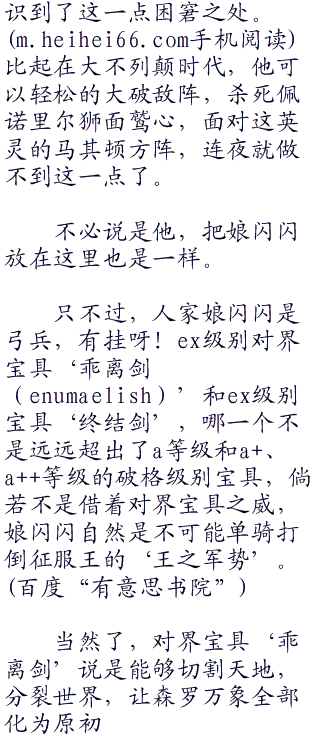 识到了这一点困窘之处。
(m.heihei66.com手机阅读)
比起在大不列颠时代，他可
以轻松的大破敌阵，杀死佩
诺里尔狮面鹫心，面对这英
灵的马其顿方阵，连夜就做
不到这一点了。
不必说是他，把娘闪闪
放在这里也是一样。
只不过，人家娘闪闪是
弓兵，有挂呀！ex级别对界
宝具‘乖离剑
（enumaelish）’和ex级别
宝具‘终结剑’，哪一个不
是远远超出了a等级和a+、
a++等级的破格级别宝具，倘
若不是借着对界宝具之威，
娘闪闪自然是不可能单骑打
倒征服王的‘王之军势’。
(百度“有意思书院”)
当然了，对界宝具‘乖
离剑’说是能够切割天地，
分裂世界，让森罗万象全部
化为原初